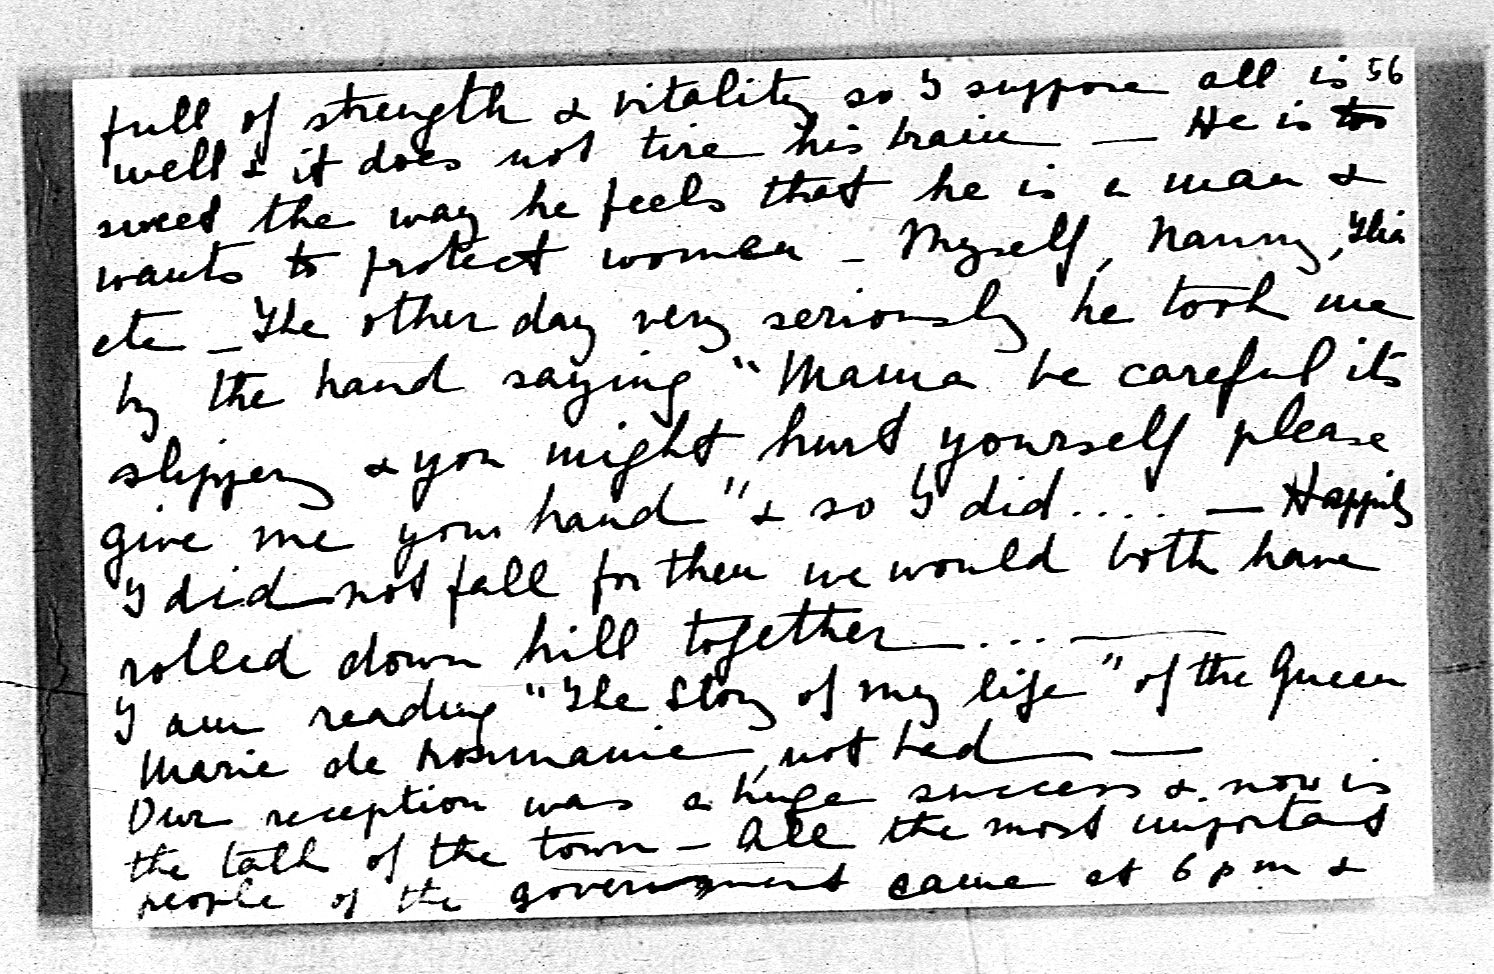 56
full of strength & vitality so I suppose all is
well & it does not tire his brain — He is too
sweet the way he feels that he is a man &
wants to protect women — Myself, Nanny,
etc — The other day very seriously he took me
by the hand saying "Mama be careful its
slippery & you might hurt yourself please
give me your hand" & so I did.... — Happily
I did not fall for then we would both have
rolled down hill together ... —
I am reading "The Story of my life" of the Queen
Marie de Roumanie, not bad —
Our reception was a huge success & now is
the talk of the town — All the most important
people of the government came at 6 pm &